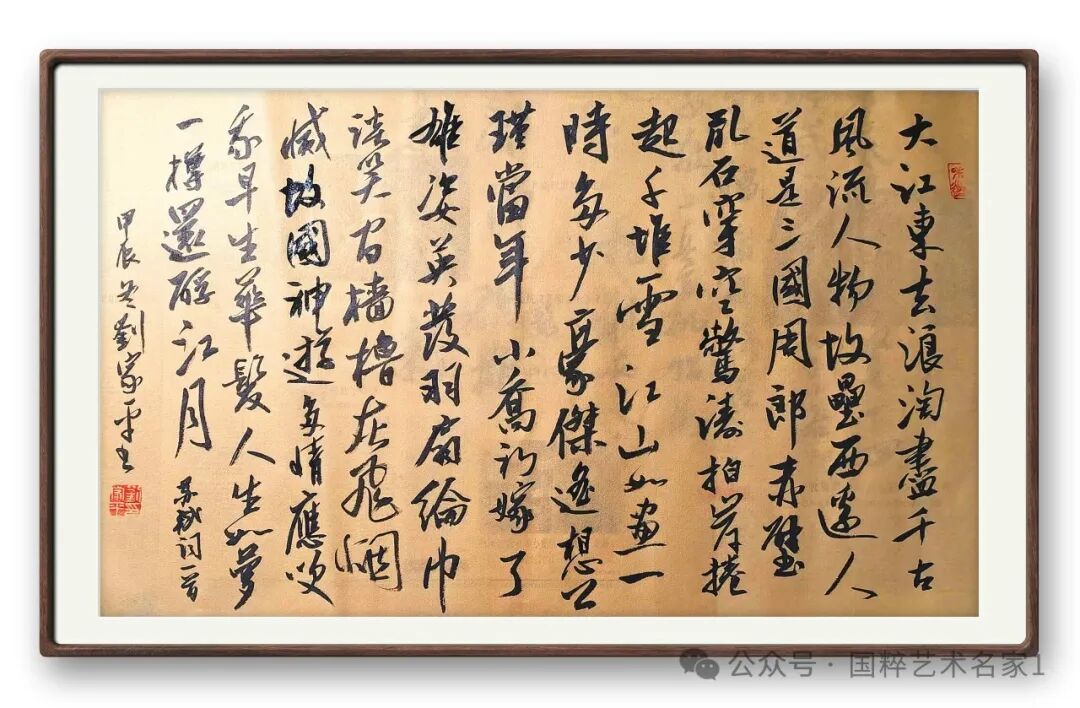 大江東去浪淘盡千古
風流人物故壘西邊人
道是三國周郎赤壁
亂石穿空驚濤拍岸捲
起千堆雪江山如畫一
時多少豪傑遙想公
瑾當年小喬初嫁了
雄姿英發羽扇綸巾
談笑間檣櫓灰飛烟
滅故國神遊多情應笑
我早生華髮人生如夢
一樽還酹江月 蘇軾詞一首
甲辰劉家平书
公众号 · 国粹艺术名家1